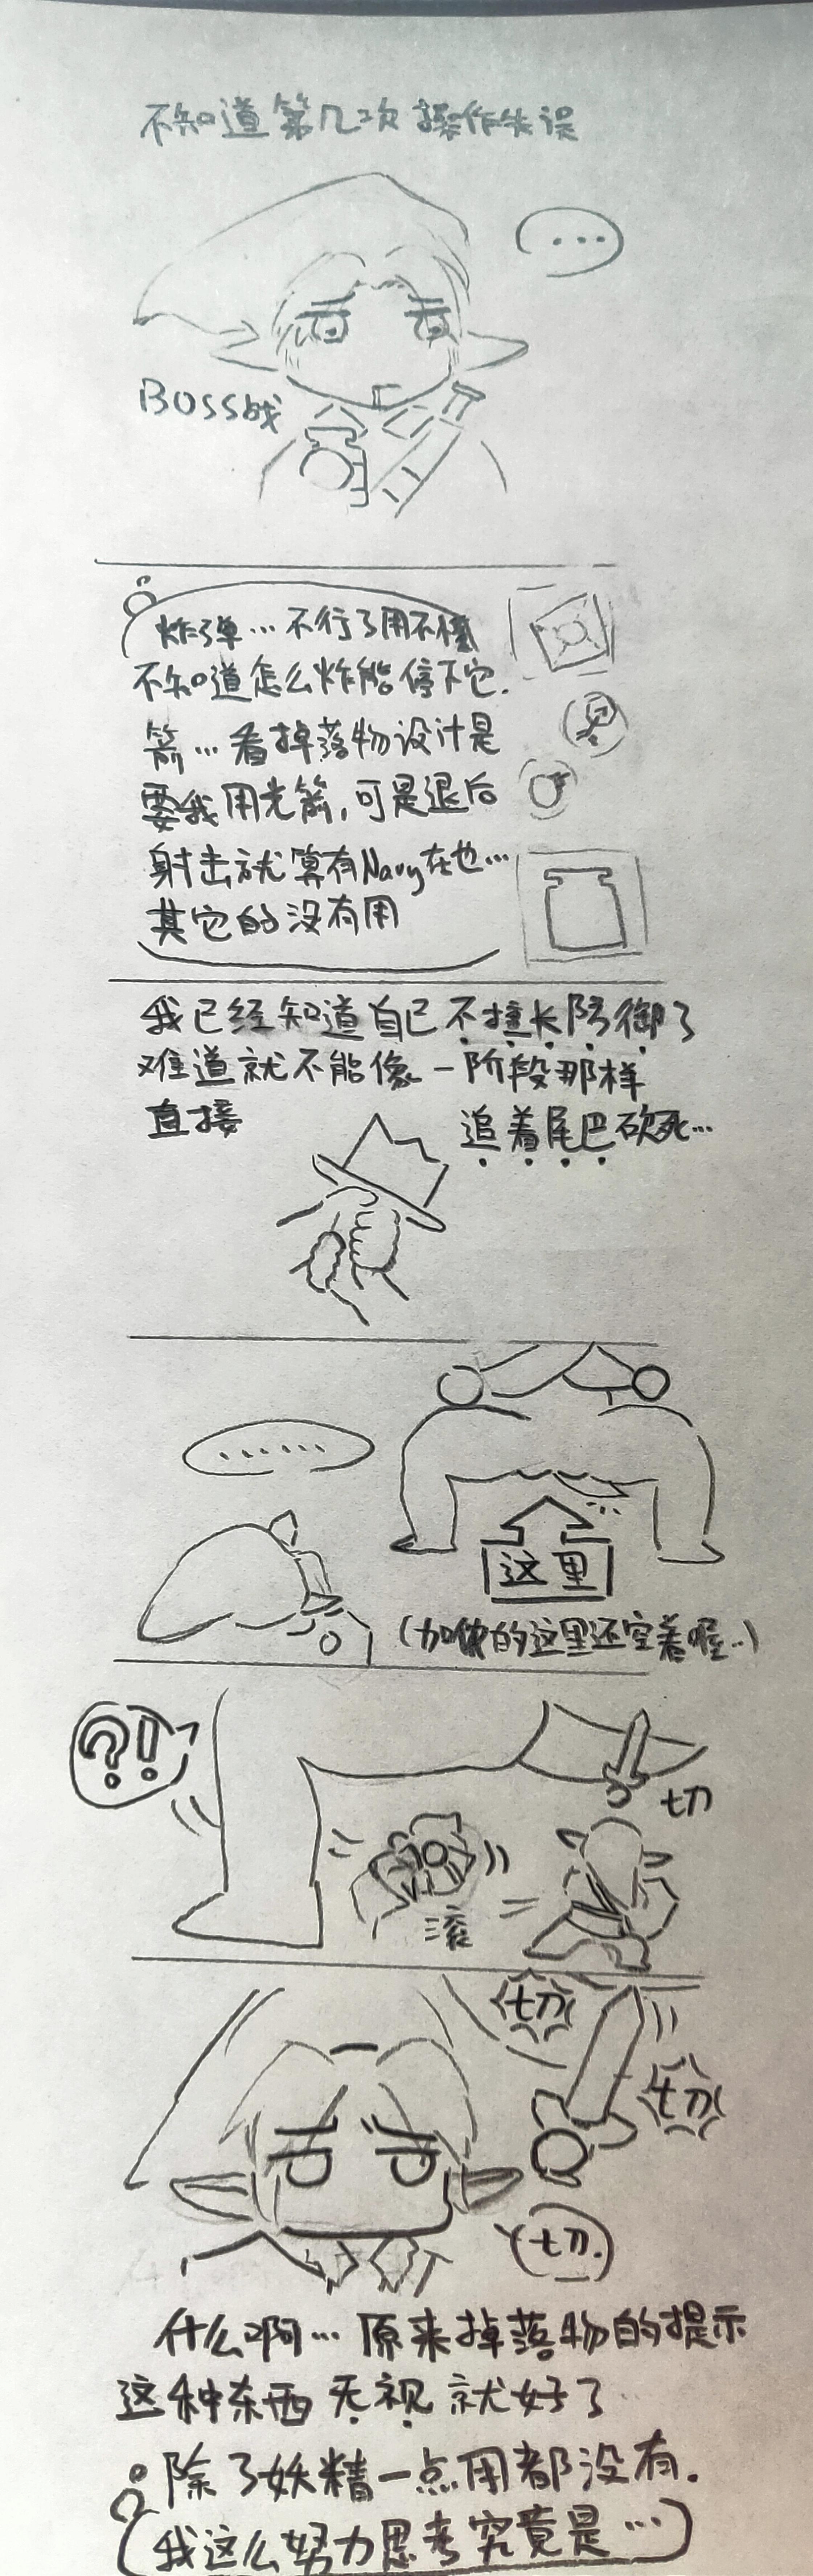 不知道第几次操作失误
...
BOSS战
炸弹…不行了用不惯
不知道怎么炸能停下它.
箭…看掉落物设计是
要我用光箭,可是退后
射击就算有Navy在也…
其它的没有用
我已经知道自己不擅长防御了
难道就不能像一阶段那样
直接 追着尾巴砍死…
......
这里
(加侬的这里还空着喔..)
?!
切
滚
切
切
切.
什么啊…原来掉落物的提示
这种东西无视就好了
除了妖精一点用都没有.
(我这么努力思考究竟是…)